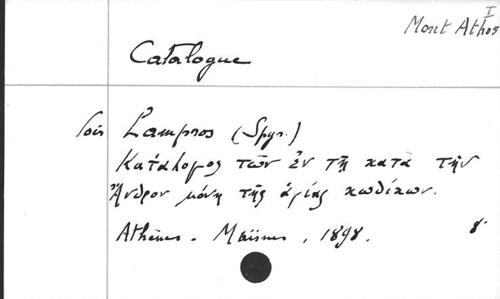 I
Mont Athos
Catalogue
Voir Lampros (Spyr.)
Κατάλογος τῶν ἐν τῇ κατὰ τὴν
Ἄνδρον μόνῃ τῆς ἁγίας κωδίκων.
Athènes - , 1898. 8°